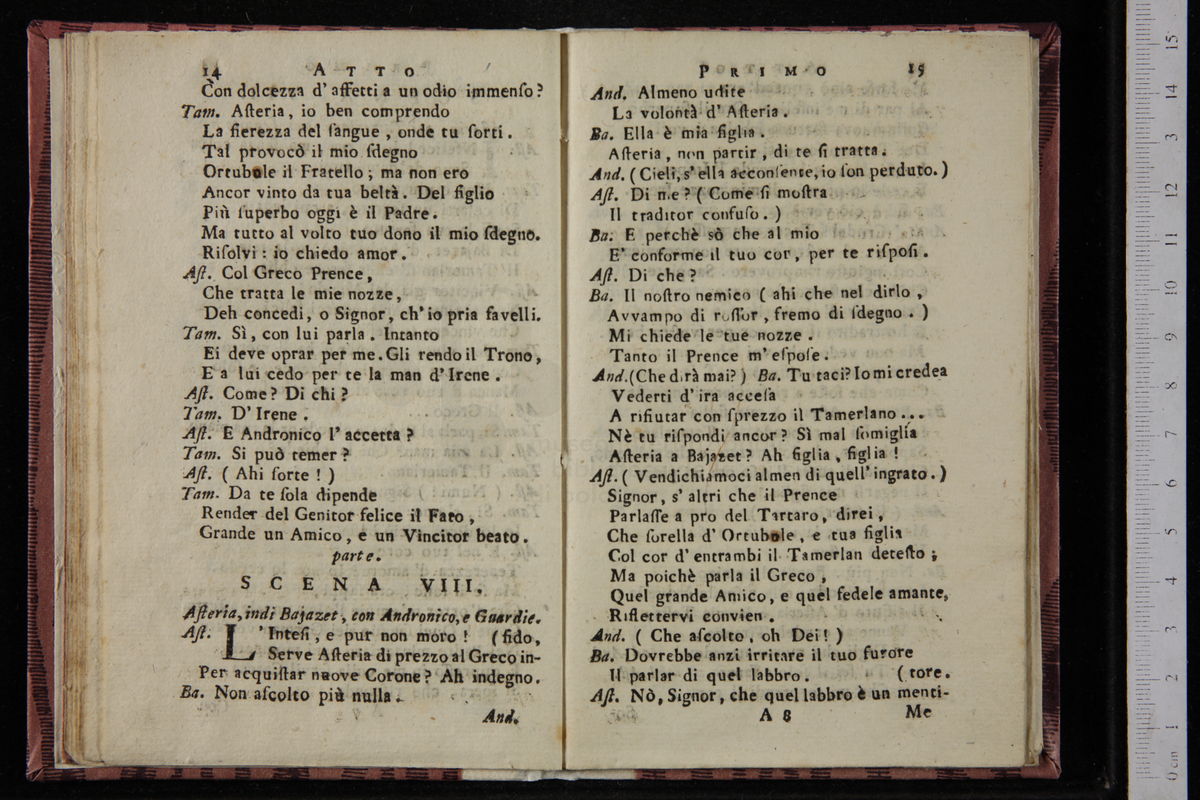 14 ATTO
Con dolcezza d' affetti a un odio immenſo?
Tam. Aſteria, io ben comprendo
La fierezza del ſangue, onde tu ſorti.
Tal provocò il mio ſdegno
Ortubole il Fratello; ma non ero
Ancor vinto da tua beltà. Del figlio
Più ſuperbo oggi è il Padre.
Ma tutto al volto tuo dono il mio ſdegno.
Riſolvi: io chiedo amor.
Aſt. Col Greco Prence,
Che tratta le mie nozze,
Deh concedi, o Signor, ch' io pria favelli.
Tam. Sì, con lui parla. Intanto
Ei deve oprar per me. Gli rendo il Trono,
E a lui cedo per te la man d' Irene.
Aſt. Come? Di chi?
Tam. D' Irene.
Aſt. E Andronico l' accetta?
Tam. Si può temer?
Aſt. ( Ahi ſorte! )
Tam. Da te ſola dipende
Render del Genitor felice il Fato,
Grande un Amico, e un Vincitor beato.
parte.
SCENA VIII.
Aſteria, indi Bajazet, con Andronico, e Guardie.
Aſt. L' Inteſi, e pur non moro! (fido,
Serve Aſteria di prezzo al Greco in-
Per acquiſtar nuove Corone? Ah indegno.
Ba. Non aſcolto più nulla.
And.
PRIMO 15
And. Almeno udite
La volontà d' Aſteria.
Ba. Ella è mia figlia.
Aſteria, non partir, di te ſi tratta.
And. ( Cieli, s' ella acconſente, io ſon perduto. )
Aſt. Di me? ( Come ſi moſtra
Il traditor confuſo. )
Ba. E perchè sò che al mio
E' conforme il tuo cor, per te riſpoſi.
Aſt. Di che?
Ba. Il noſtro nemico ( ahi che nel dirlo,
Avvampo di roſſor, fremo di ſdegno. )
Mi chiede le tue nozze.
Tanto il Prence m' eſpoſe.
And. (Che dirà mai?) Ba. Tu taci? Io mi credea
Vederti d' ira acceſa
A rifiutar con ſprezzo il Tamerlano...
Nè tu riſpondi ancor? Sì mal ſomiglia
Aſteria a Bajazet? Ah figlia, figlia!
Aſt. ( Vendichiamoci almen di quell' ingrato. )
Signor, s' altri che il Prence
Parlaſſe a pro del Tartaro, direi,
Che ſorella d' Ortubole, e tua figlia
Col cor d' entrambi il Tamerlan deteſto;
Ma poichè parla il Greco,
Quel grande Amico, e quel fedele amante,
Riflettervi convien.
And. ( Che aſcolto, oh Dei! )
Ba. Dovrebbe anzi irritare il tuo furore
Il parlar di quel labbro. (tore.
Aſt. Nò, Signor, che quel labbro è un menti-
A 8 Me
0 cm 1 2 3 4 5 6 7 8 9 10 11 12 13 14 15